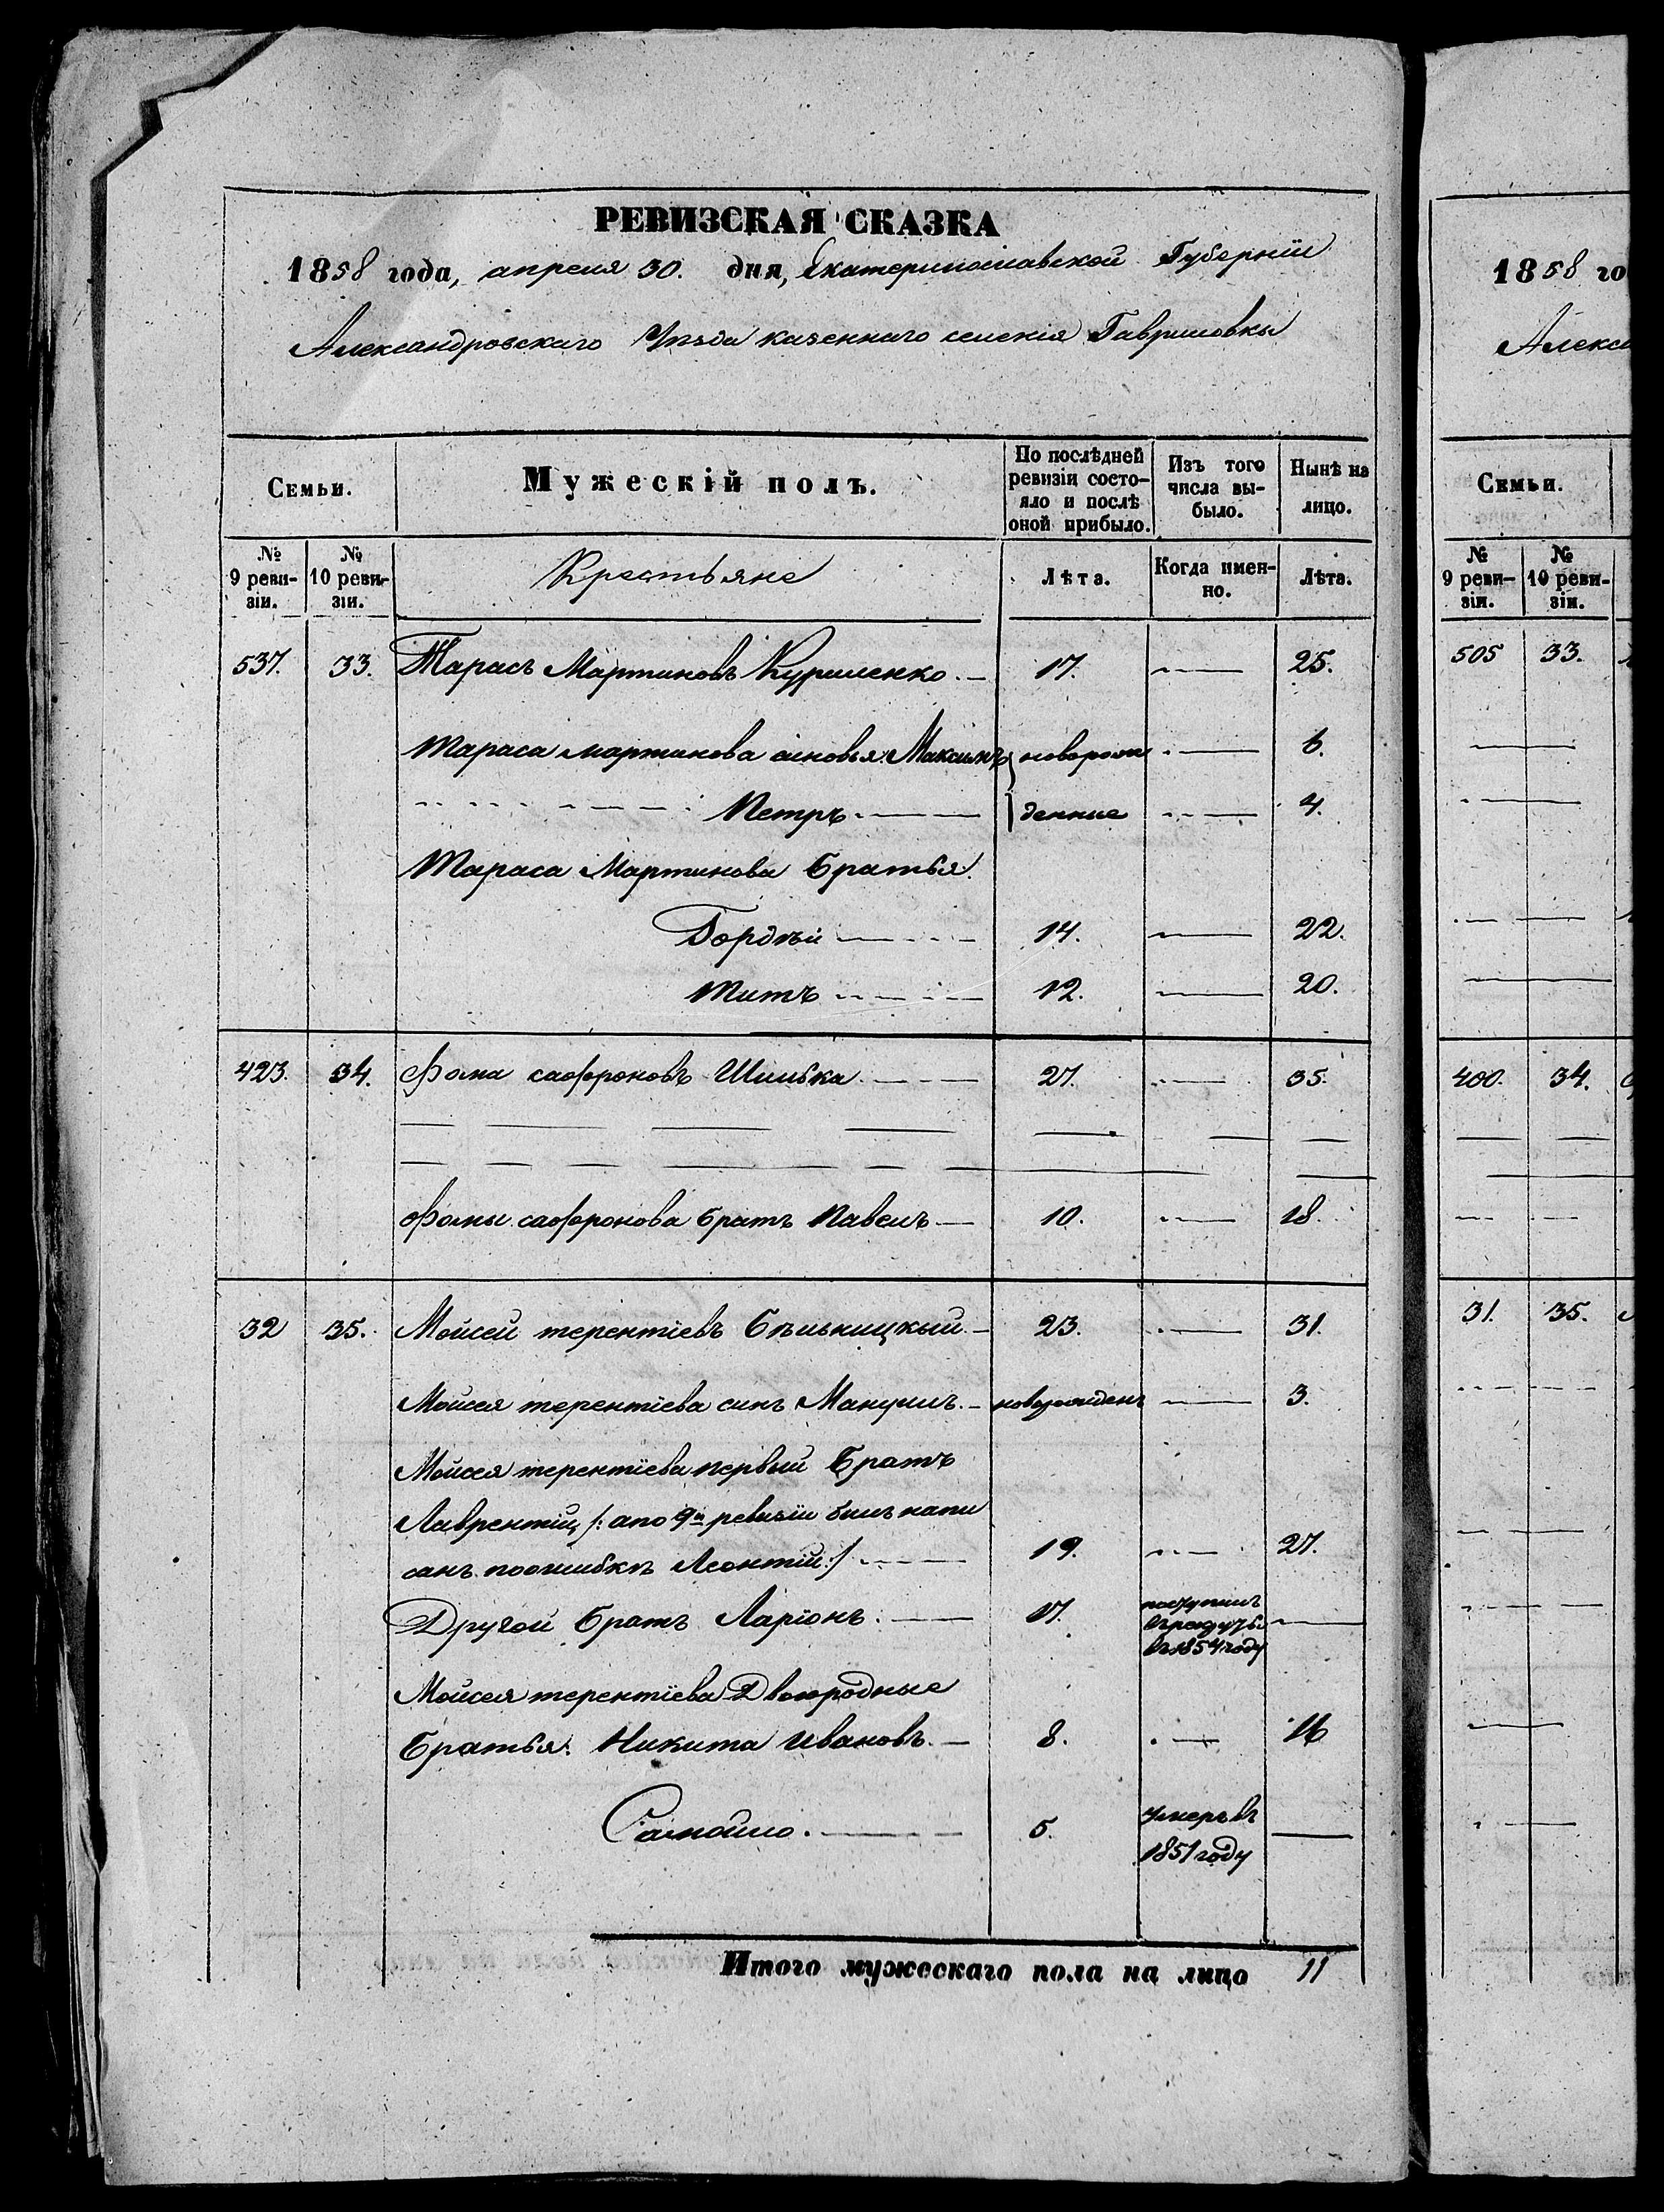 РЕВИЗСКАЯ СКАЗКА
1858 года, апреля 30. дня, Екатеринославской Губернïи
Александровскаго Уѣзда казеннаго селенія Гавриловки
Семьи.
Мужескій полъ.
По послѣдней ревизіи состо-
яло и послѣ оной прибыло.
Изъ того числа вы-
было.
Нынѣ на лицо.
№ 9 реви-
зіи.
№ 10 реви-
зіи.
Крестьяне
Лѣта.
Когда имен-
но.
Лѣта.
537. 33. Тарасъ Мартиновъ Куриленко. — 17. — 25.
Тараса мартинова синовья: Максимъ } новорож — 6.
Петръ. — } денние — 4.
Тараса Мартинова Братья:
Гордѣй — 14. — 22.
Титъ — 12. — 20.
423. 34. Фома сафроновъ Шилька. — 27. — 35.
Фомы сафронова братъ Павелъ — 10. — 18.
32 35. Мойсей терентïевъ Бѣльницкый. — 23. — 31.
Мойсея терентïева синъ Мануилъ. — новорожденъ — 3.
Мойсея терентïева первый Братъ
Лаврентий /: а по 9й ревизïи билъ напи
санъ поошибкѣ Леонтий:/ — 19. — 27.
Другой братъ Ларïонъ. — 17. поступилъ
в рекруты
въ 1854 году —
Мойсея терентïева Двоюродные
братья: Никита Ивановъ. — 8. — 16
Самойло. — 5. умеръ въ
1851 году —
Итого мужескаго пола на лицо 11
1858 го
Алекса
Семьи.
№ 9 реви-
зіи.
№ 10 реви-
зіи.
505 33.
400. 34.
31. 35.